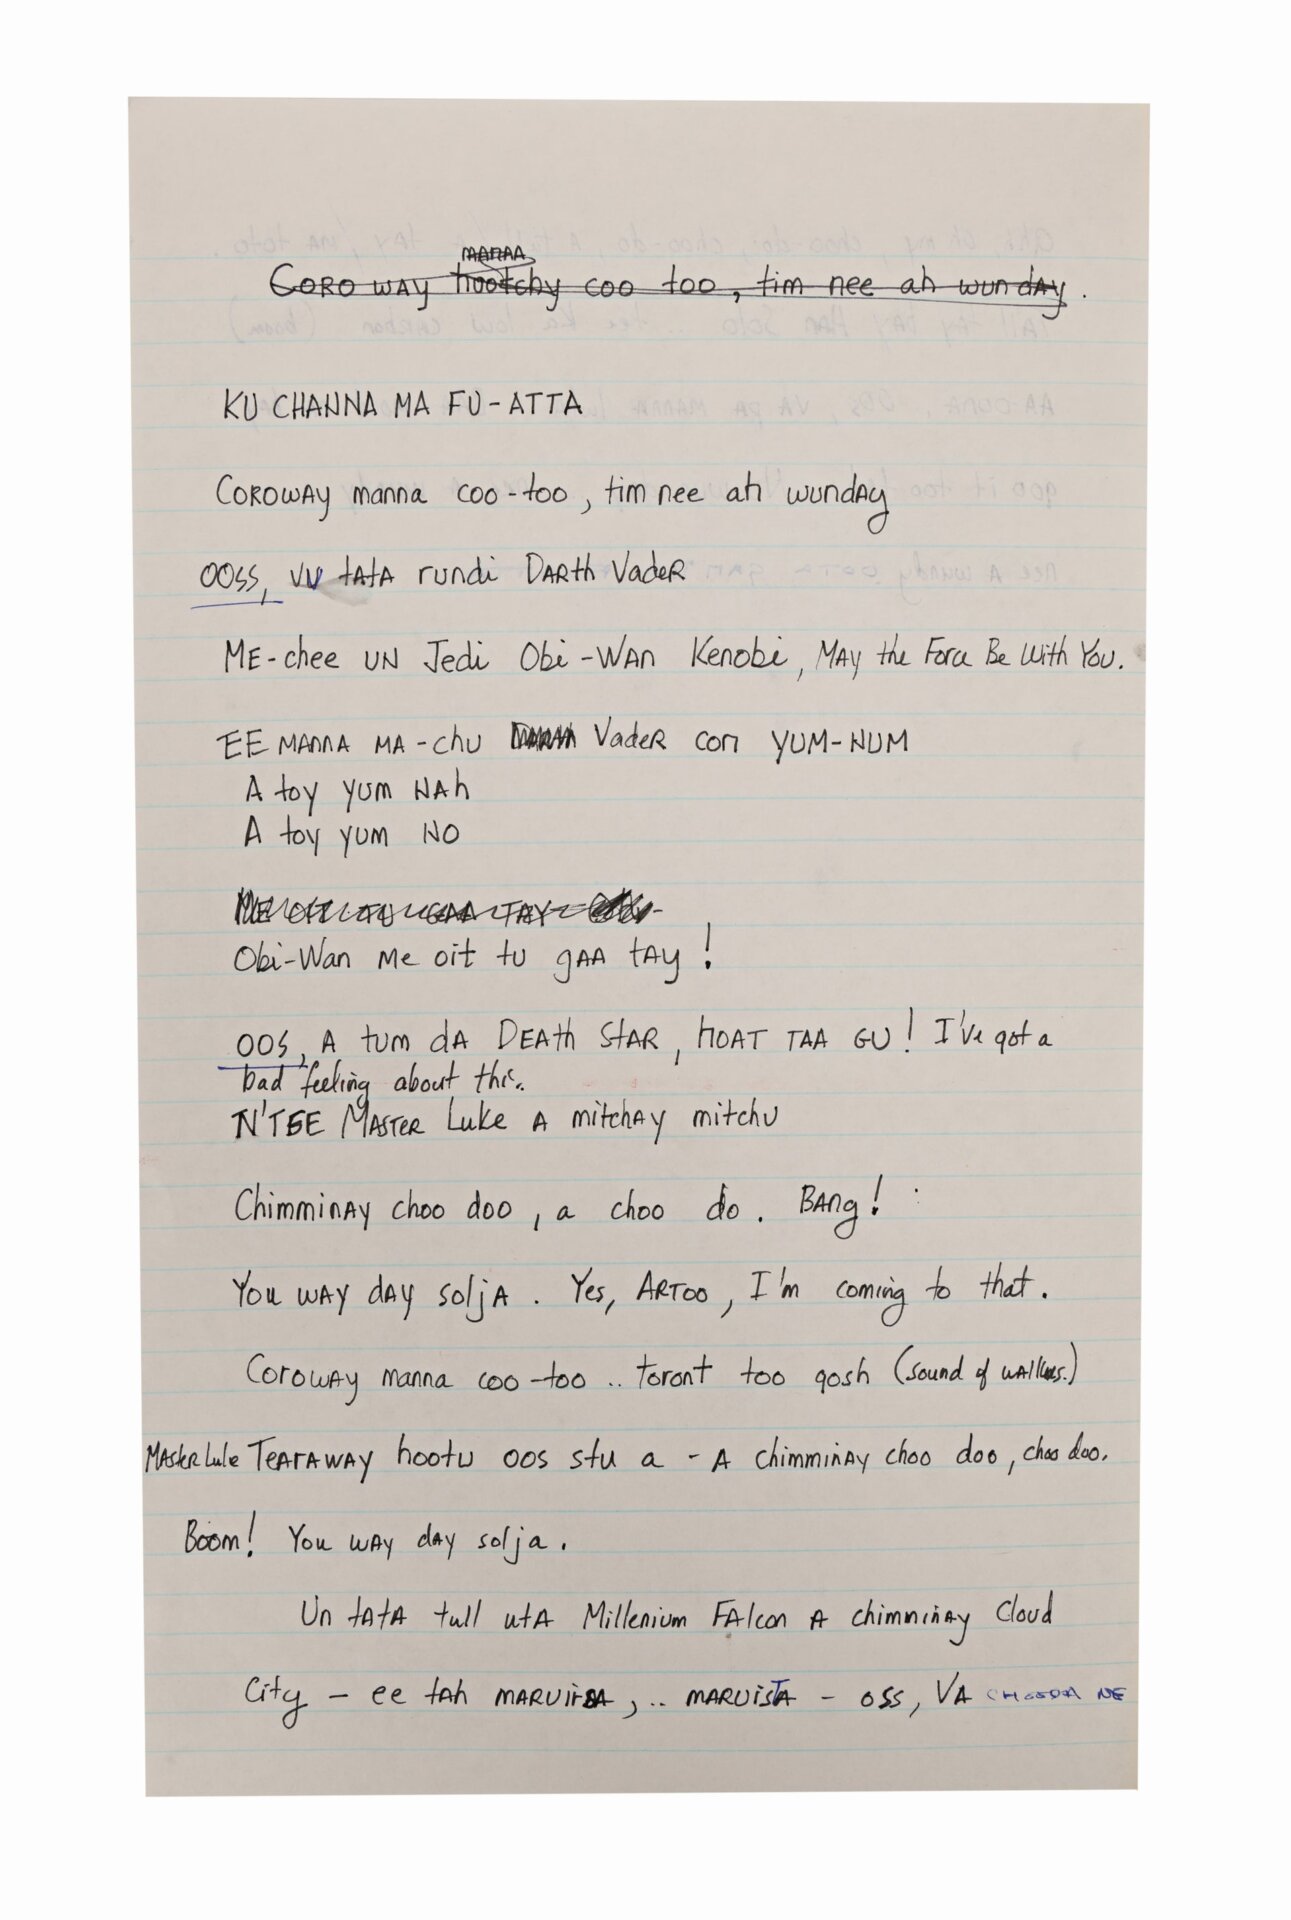 manaa
Coro way hootchy coo too, tim nee ah wunday.
KU CHANNA MA FU-ATTA
Coroway manna coo-too, tim nee ah wunday
OOSS, VU tata rundi Darth Vader
ME-chee UN Jedi Obi-Wan Kenobi, May the Force Be With You.
EE MANNA MA-chu Darth Vader con YUM-NUM
A toy yum NAh
A toy yum NO
ME OIT TU GAA TAY
Obi-Wan Me oit tu gAA tAy!
OOS, A tum dA DEAth StAR, HOAT TAA GU! I've got a
bad feeling about this..
N'TEE MASTER Luke A mitchAy mitchu
ChimminAy choo doo, a choo do. BAng!
You wAy dAy soljA. Yes, ARTOO, I'm coming to that.
Coroway manna coo-too.. toront too gosh (sound of walkers.)
Master Luke TearAwAy hootu oos stu a - A chimminAy choo doo, choo doo.
Boom! You wAy dAy solja.
Un tAtA tull utA Millenium FAlcon A chimminAy Cloud
City - ee tah,.. MARUISTA - oss, VA